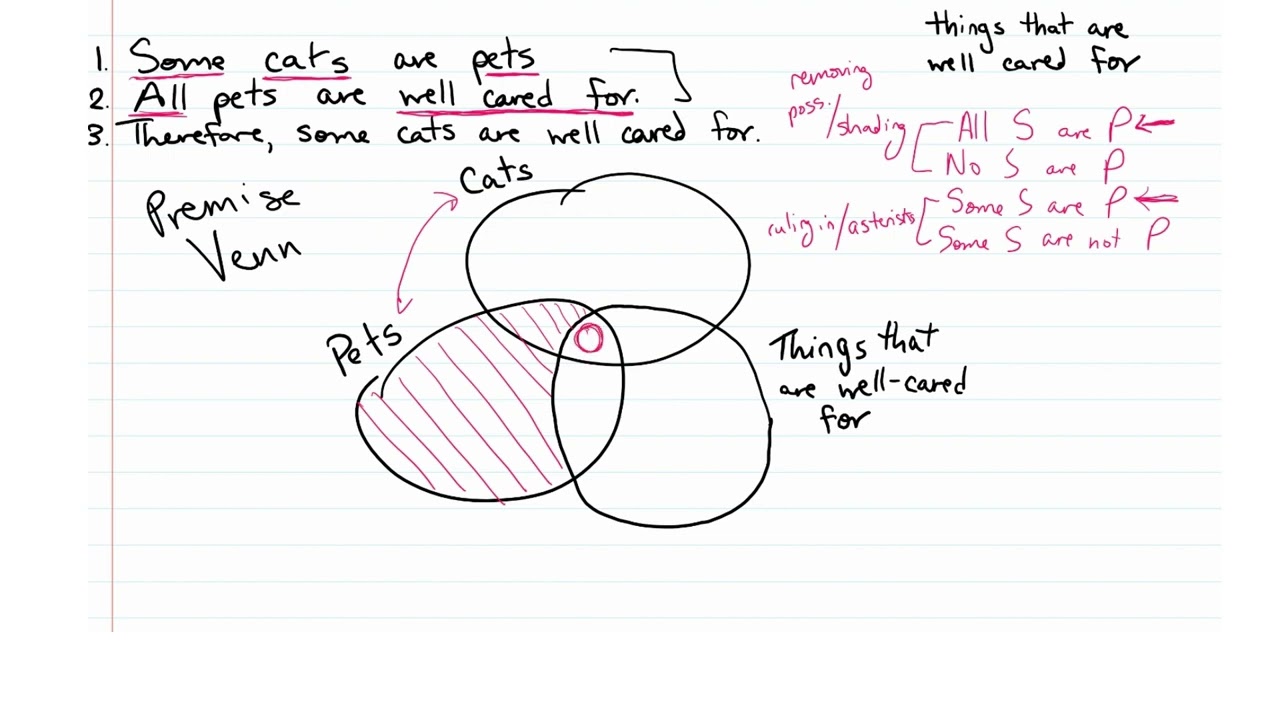 1. Some cats are pets
2. All pets are well cared for.
3. Therefore, some cats are well cared for.
things that are
well cared for
removing
poss./shading
All S are P
No S are P
ruling in/asterists
Some S are P
Some S are not P
Premise
Venn
Cats
Pets
Things that
are well-cared
for